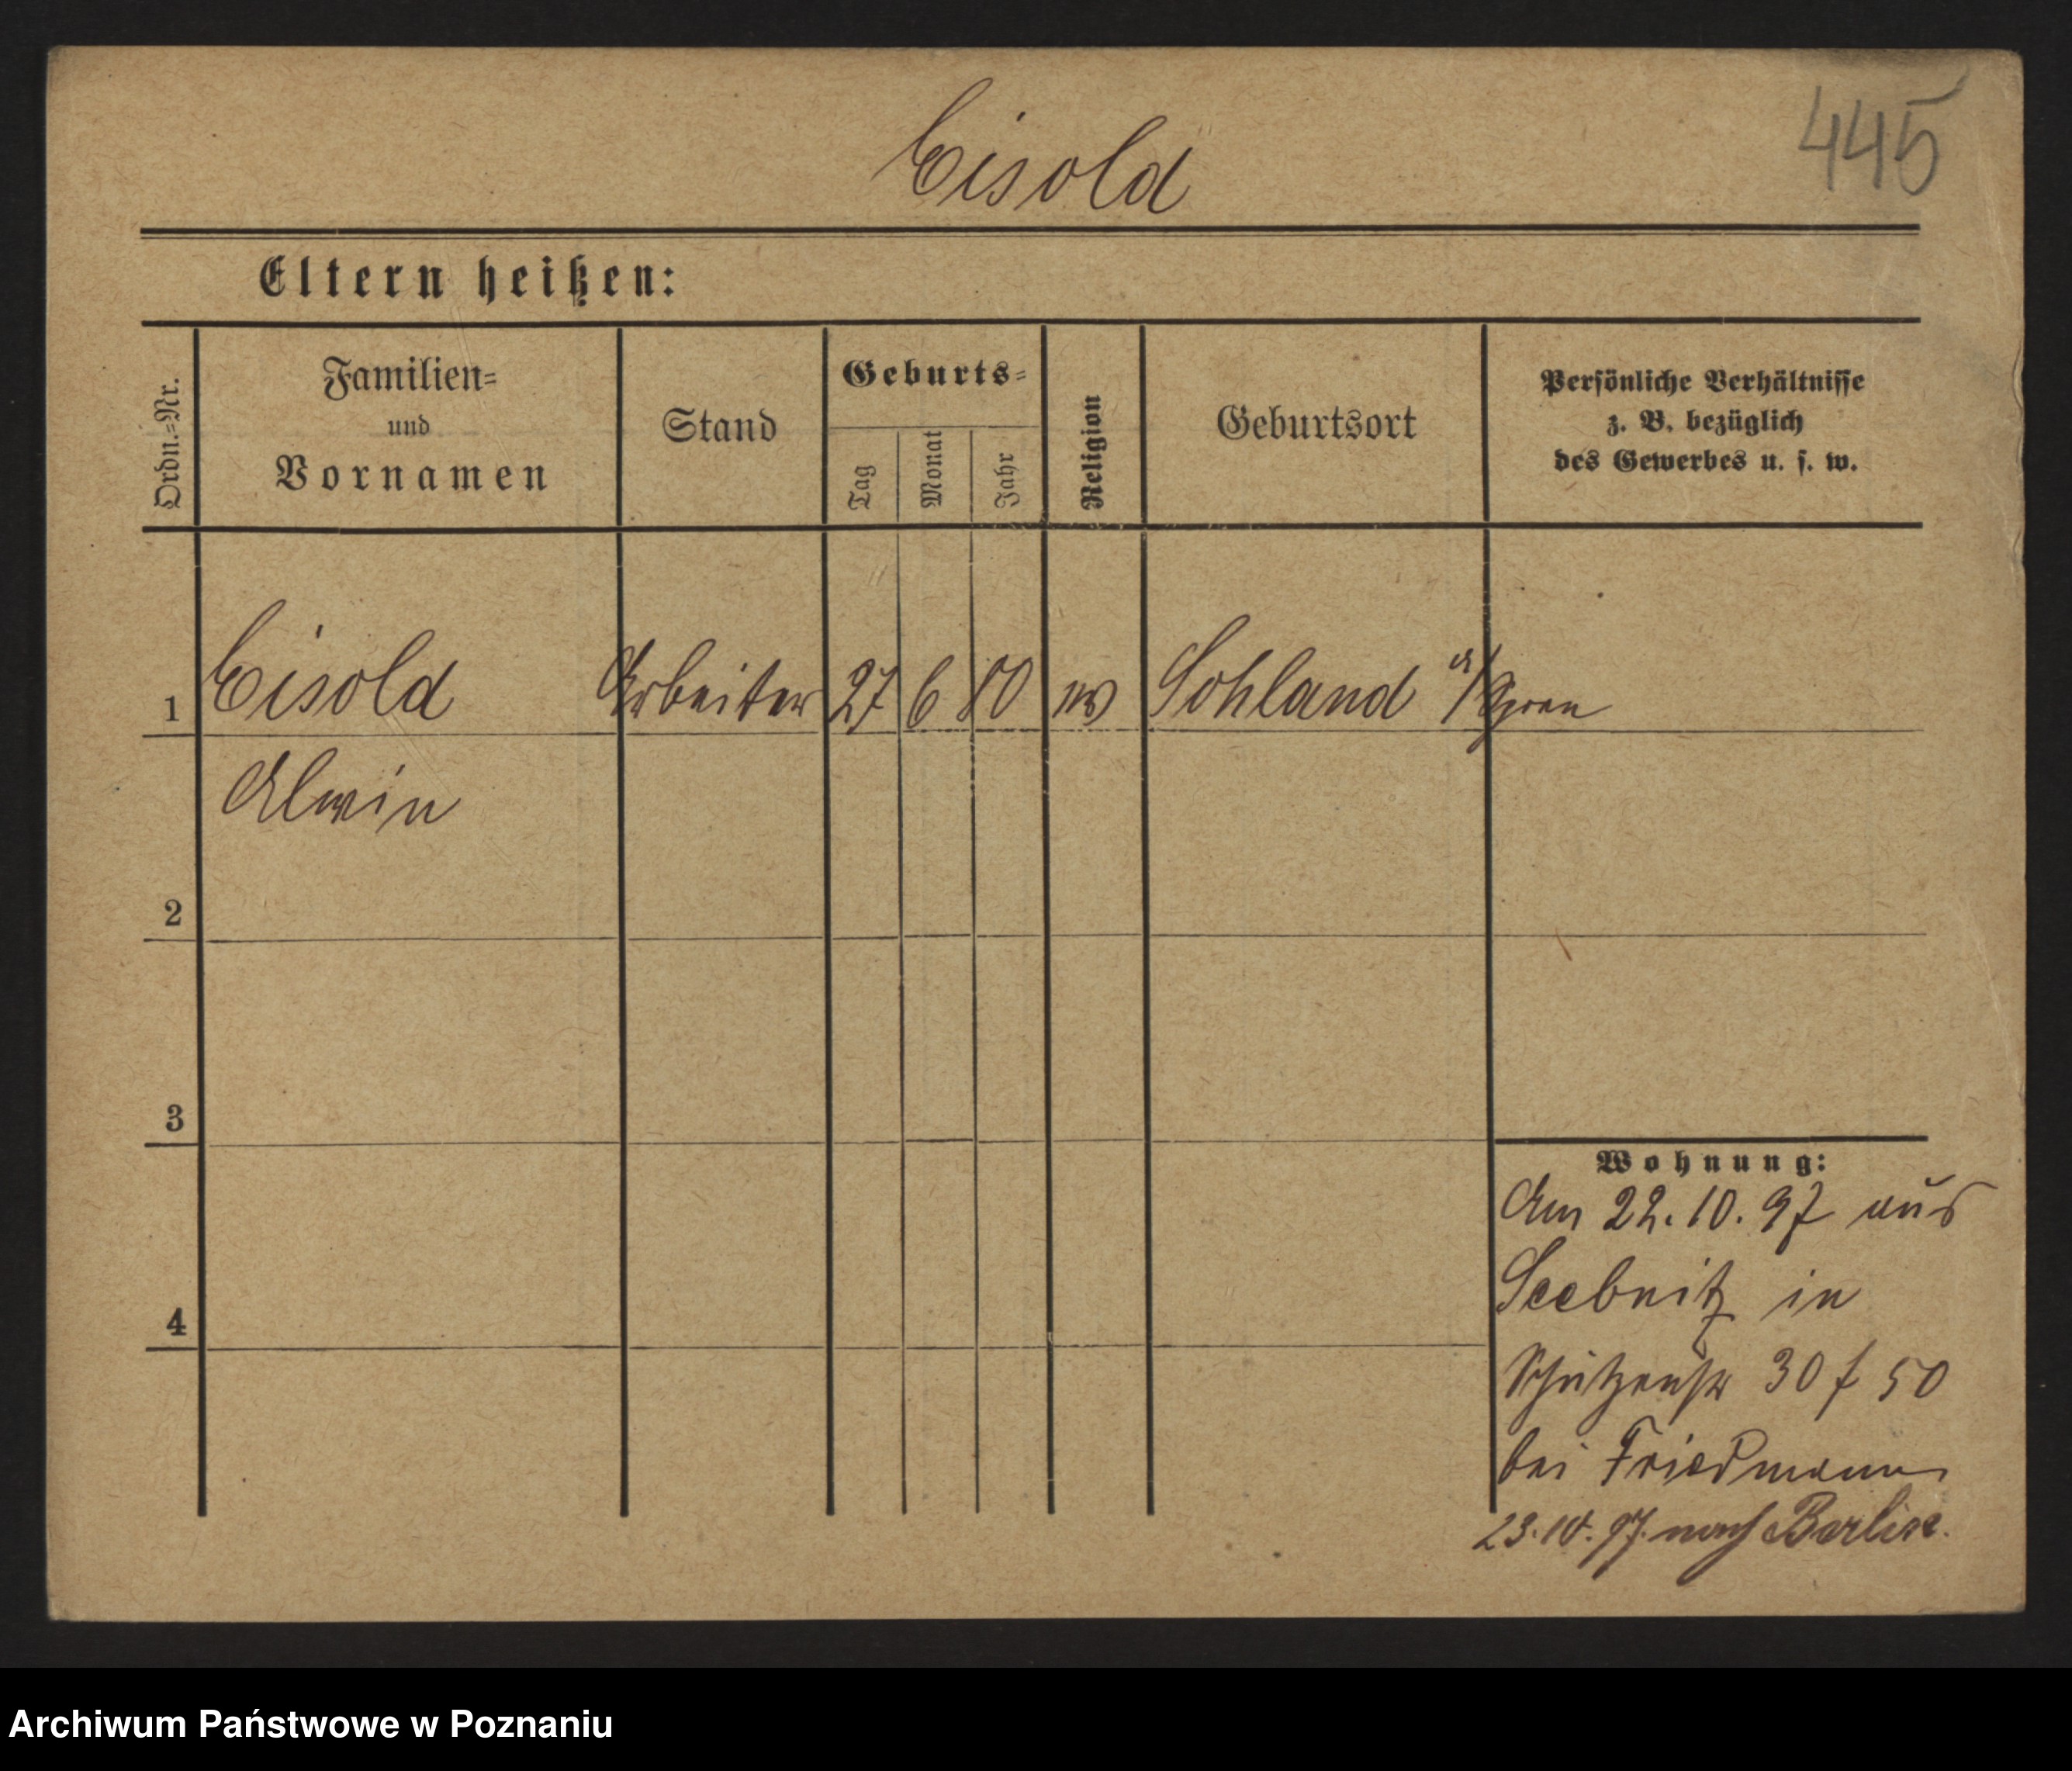 445
Eisold
Eltern heißen:
Ordn.=Nr.
Familien=
und
Vornamen
Stand
Geburts=
Tag
Monat
Jahr
Religion
Geburtsort
Persönliche Verhältnisse
z. B. bezüglich
des Gewerbes u. s. w.
1 Eisold Arbeiter 27 6 80 ev Sohland a/Spree
Alwin
2
3
4
Wohnung:
Am 22.10.97 aus
Seebnitz in
Schützenstr 30 f 50
bei Friedmann
23.10.97. nach Berlin.
Archiwum Państwowe w Poznaniu